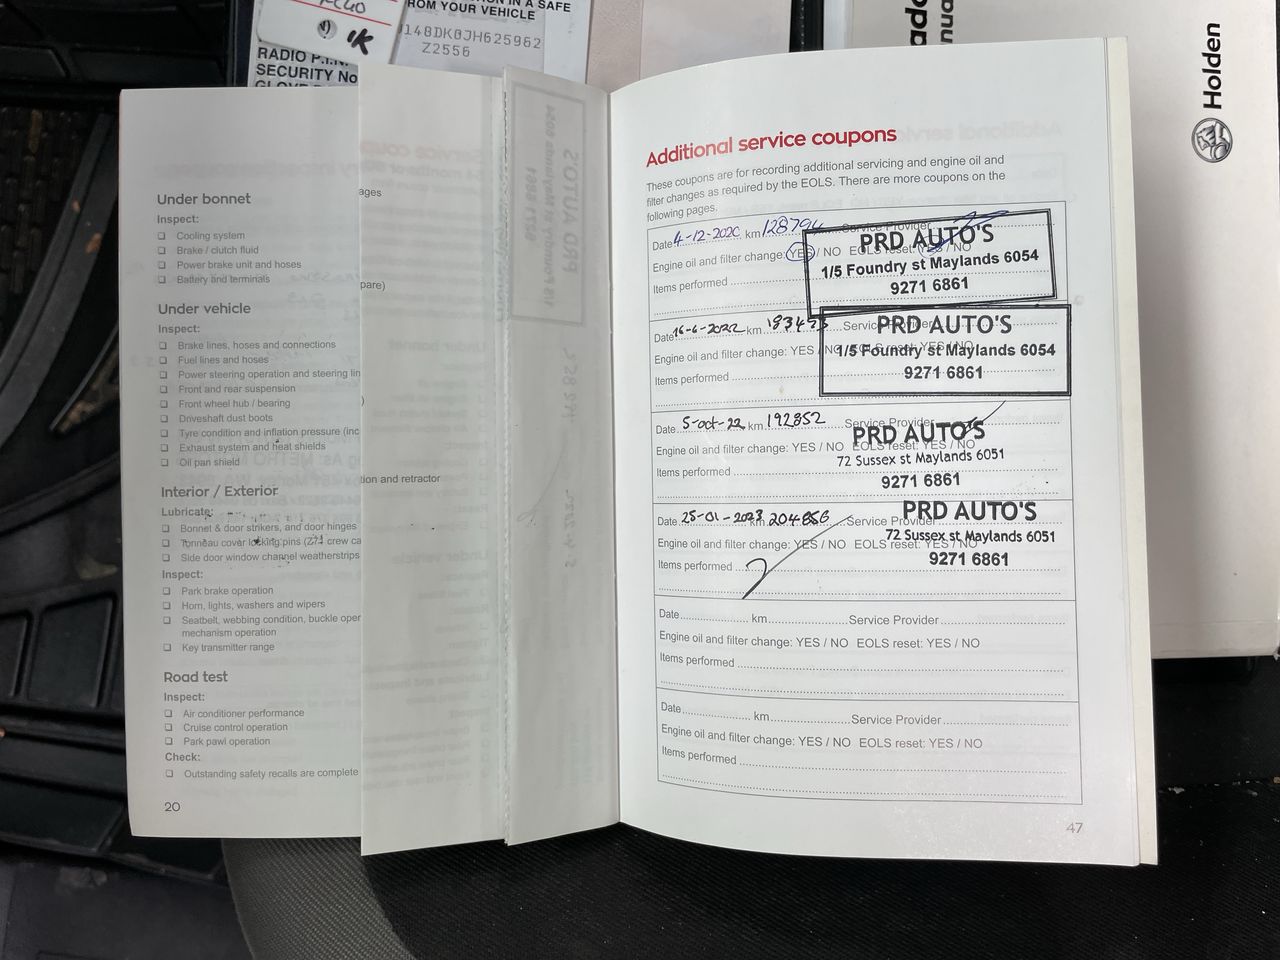 IN A SAFE
ROM YOUR VEHICLE
148DK0JH625962
Z2556
1K
RADIO P.I.N.
SECURITY No
Holden
Under bonnet
Inspect:
❏ Cooling system
❏ Brake / clutch fluid
❏ Power brake unit and hoses
❏ Battery and terminals
Under vehicle
Inspect:
❏ Brake lines, hoses and connections
❏ Fuel lines and hoses
❏ Power steering operation and steering lin
❏ Front and rear suspension
❏ Front wheel hub / bearing
❏ Driveshaft dust boots
❏ Tyre condition and inflation pressure (inc
❏ Exhaust system and heat shields
❏ Oil pan shield
Interior / Exterior
Lubricate:
❏ Bonnet & door strikers, and door hinges
❏ Tonneau cover locking pins (Z71 crew ca
❏ Side door window channel weatherstrips
Inspect:
❏ Park brake operation
❏ Horn, lights, washers and wipers
❏ Seatbelt, webbing condition, buckle oper
mechanism operation
❏ Key transmitter range
Road test
Inspect:
❏ Air conditioner performance
❏ Cruise control operation
❏ Park pawl operation
Check:
❏ Outstanding safety recalls are complete
20
ages
pare)
)
tion and retractor
Additional service coupons
These coupons are for recording additional servicing and engine oil and
filter changes as required by the EOLS. There are more coupons on the
following pages.
Date 4-12-2020 km 128794 Service Provider
PRD AUTO'S
Engine oil and filter change: YES / NO EOLS reset: YES / NO
1/5 Foundry st Maylands 6054
Items performed
9271 6861
Date 16-6-2022 km Service Provider
PRD AUTO'S
Engine oil and filter change: YES / NO EOLS reset: YES / NO
1/5 Foundry st Maylands 6054
Items performed
9271 6861
Date 5-oct-22 km 192852 Service Provider
PRD AUTO'S
Engine oil and filter change: YES / NO EOLS reset: YES / NO
72 Sussex st Maylands 6051
Items performed
9271 6861
Date 25-01-2023 km 204856 Service Provider
PRD AUTO'S
72 Sussex st Maylands 6051
Engine oil and filter change: YES / NO EOLS reset: YES / NO
9271 6861
Items performed
Date km Service Provider
Engine oil and filter change: YES / NO EOLS reset: YES / NO
Items performed
Date km Service Provider
Engine oil and filter change: YES / NO EOLS reset: YES / NO
Items performed
47